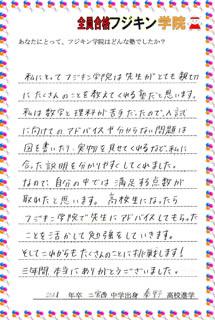 全員合格フジキン学院
あなたにとって、フジキン学院はどんな塾でしたか?
私にとってフジキン学院は先生がとても親切
にたくさんのことを教えてくれる塾だと思います。
私は数学と理科が苦手だったので、入試
に向けてのアドバイスや分からない問題は
図を書いたり、実物を見せてくれるなど、私に
合った説明を分かりやすくしてくれました。
なので、自分の中では満足する点数が
取れたと思います。高校生になったら
フジキン学院で先生にアドバイスしてもらった
ことを活かして勉強をしていきます。
そしてこれからもたくさんのことに挑戦します!
三年間、本当にありがとうございました。
年卒 二宮西 中学出身 秦野 高校進学